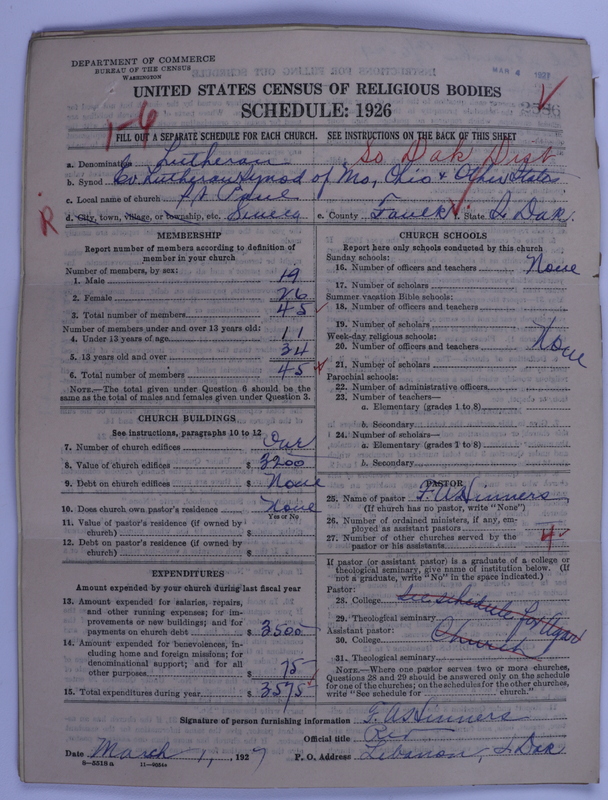 DEPARTMENT OF COMMERCE
BUREAU OF THE CENSUS
WASHINGTON
MAR 4 1927
UNITED STATES CENSUS OF RELIGIOUS BODIES
SCHEDULE: 1926
1-6
FILL OUT A SEPARATE SCHEDULE FOR EACH CHURCH. SEE INSTRUCTIONS ON THE BACK OF THIS SHEET
a. Denomination Lutheran So Dak Dist
b. Synod Ev Lutheran Synod of Mo, Ohio & Other States
c. Local name of church St Paul
d. City, town, village, or township, etc. e. County Faulk State S Dak.
R
MEMBERSHIP
Report number of members according to definition of member in your church
Number of members, by sex:
1. Male 19
2. Female 26
3. Total number of members 45
Number of members under and over 13 years old:
4. Under 13 years of age 11
5. 13 years old and over 34
6. Total number of members 45
NOTE.—The total given under Question 6 should be the same as the total of males and females given under Question 3.
CHURCH BUILDINGS
See instructions, paragraphs 10 to 12
7. Number of church edifices One
8. Value of church edifices $ 3200
9. Debt on church edifices $ None
10. Does church own pastor's residence None
Yes or No
11. Value of pastor's residence (if owned by church) $
12. Debt on pastor's residence (if owned by church) $
EXPENDITURES
Amount expended by your church during last fiscal year
13. Amount expended for salaries, repairs, and other running expenses; for improvements or new buildings; and for payments on church debt $ 3500
14. Amount expended for benevolences, including home and foreign missions; for denominational support; and for all other purposes $ 75
15. Total expenditures during year $ 3575
CHURCH SCHOOLS
Report here only schools conducted by this church
Sunday schools:
16. Number of officers and teachers None
17. Number of scholars
Summer vacation Bible schools:
18. Number of officers and teachers
19. Number of scholars
Week-day religious schools:
20. Number of officers and teachers None
21. Number of scholars
Parochial schools:
22. Number of administrative officers
23. Number of teachers—
a. Elementary (grades 1 to 8)
b. Secondary
24. Number of scholars—
a. Elementary (grades 1 to 8)
b. Secondary
PASTOR
25. Name of pastor F. A. Hinners
(If church has no pastor, write "None")
26. Number of ordained ministers, if any, employed as assistant pastors
27. Number of other churches served by the pastor or his assistants 4
If pastor (or assistant pastor) is a graduate of a college or theological seminary, give name of institution below. (If not a graduate, write "No" in the space indicated.)
Pastor:
28. College See schedule for Agar
29. Theological seminary Church
Assistant pastor:
30. College
31. Theological seminary
NOTE.—Where one pastor serves two or more churches, Questions 28 and 29 should be answered only on the schedule for one of the churches; on the schedules for the other churches, write "See schedule for church."
Signature of person furnishing information F. A. Hinners
Official title
Date March 1, 1927 P. O. Address Lebanon, S Dak
8—5518a 11—9554a